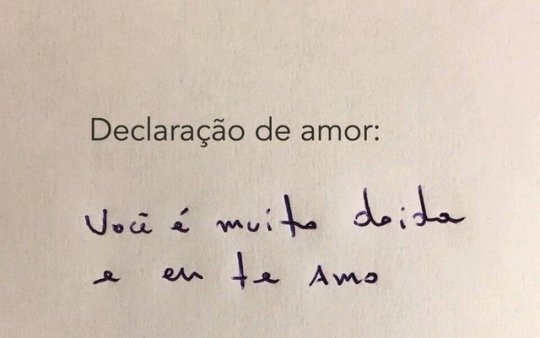 Declaração de amor:
Você é muito doida
e eu te amo